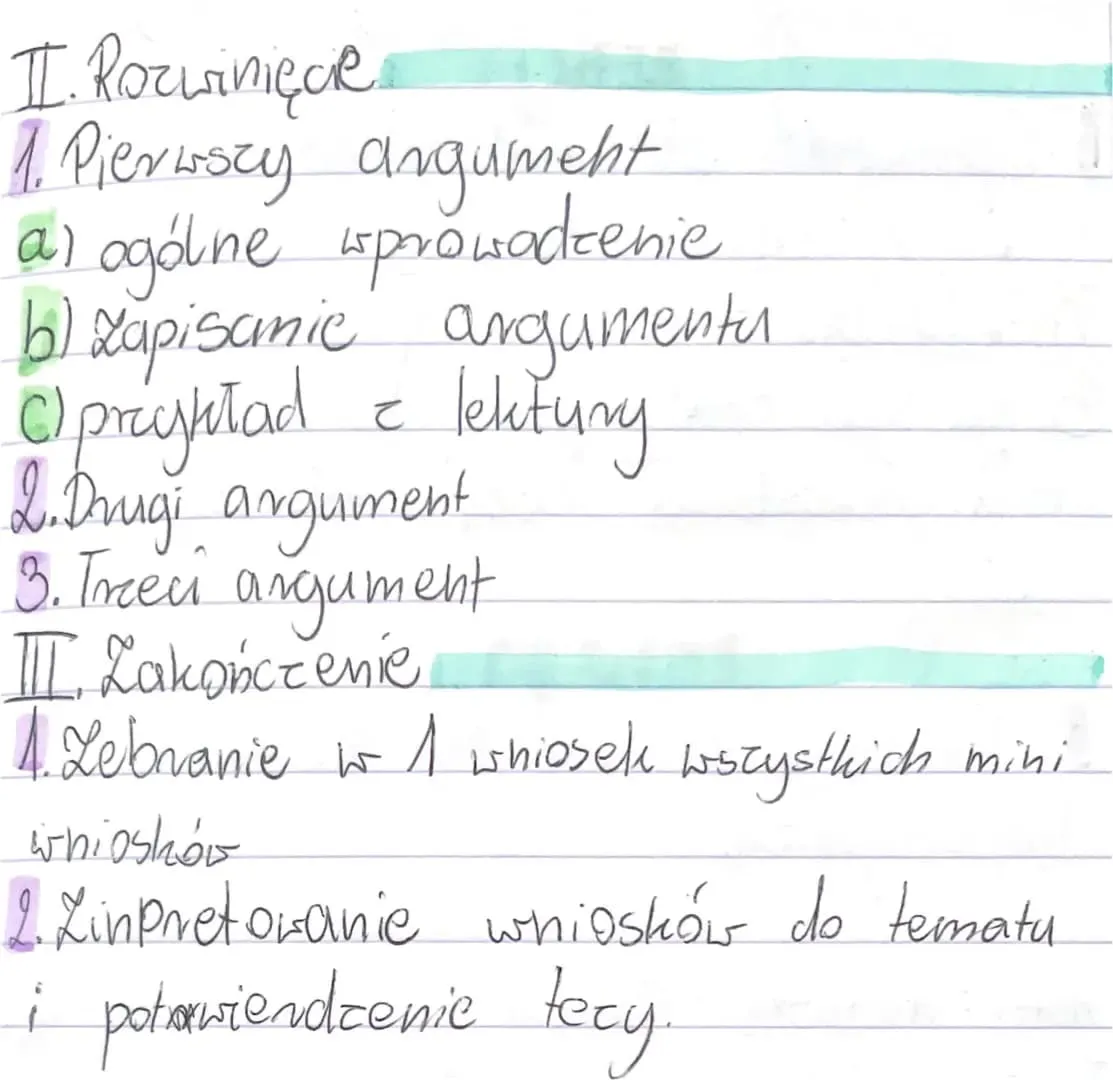 II. Rozwinięcie
1. Pierwszy argument
a) ogólne wprowadzenie
b) Zapisanie argumentu
c) przykład z lektury
2. Drugi argument
3. Trzeci argument
III. Zakończenie
1. Zebranie w 1 wniosek wszystkich mini
wniosków
2. Zinpretowanie wniosków do tematu
i potwierdzenie tezy.